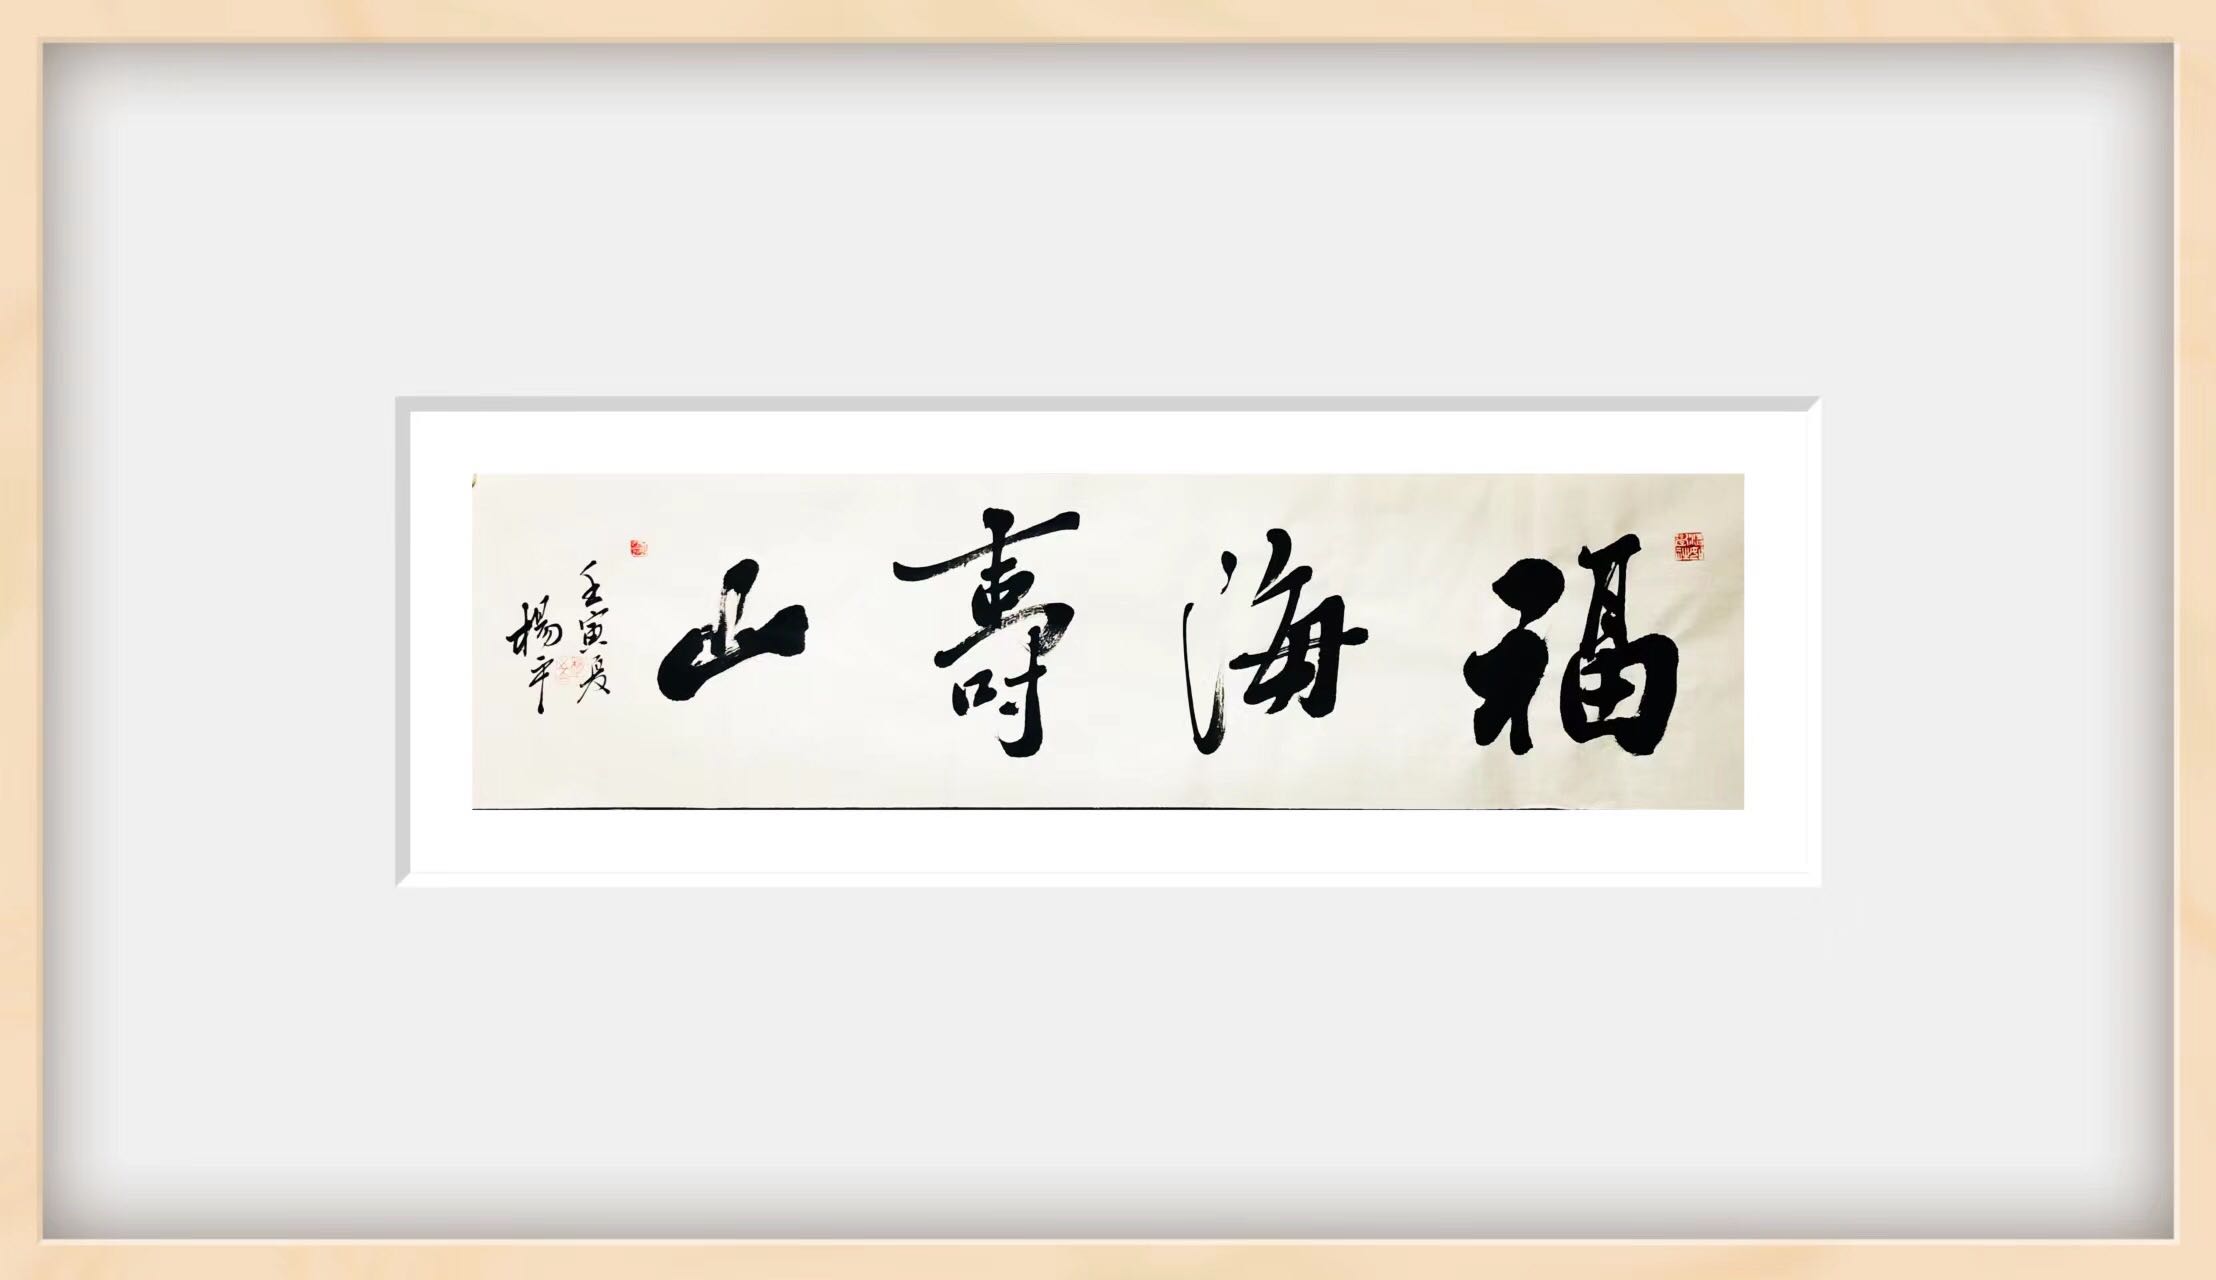 福海壽山
壬寅夏
楊平